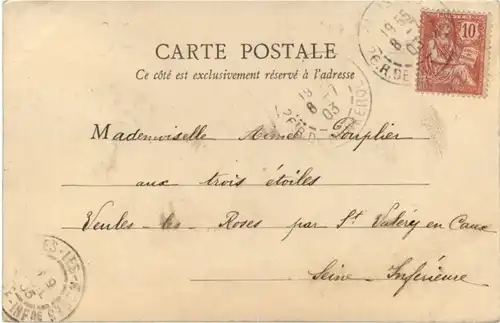 CARTE POSTALE
Ce côté est exclusivement réservé à l'adresse
POSTES
10
19 55
8 - 7
03
19
8 - 7
03
Mademoiselle Aimée Pouplier
aux trois étoiles
Veules - les - Roses par St Valéry en Caux
Seine - Inférieure